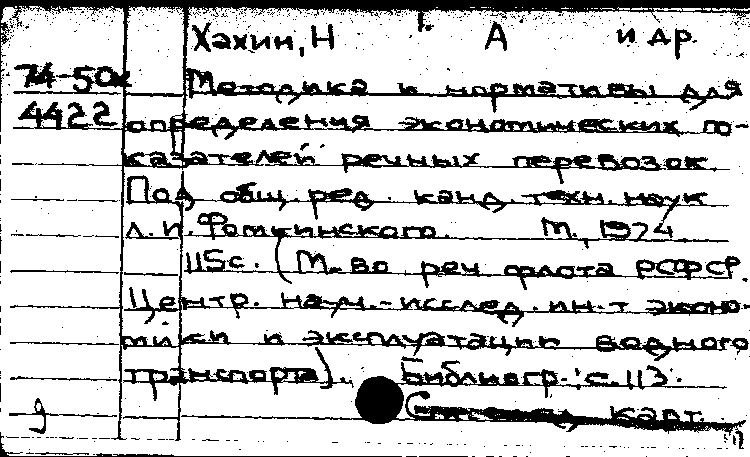 Хахин, Н А и др.
74-50к Методика и нормативы для
4422 определения экономических по-
казателей речных перевозок.
Под общ. ред. канд. техн. наук
Л. И. Фомкинского. М., 1974
115с. (М-во реч флота РСФСР.
Центр. науч.-исслед. ин-т эконо-
мики и эксплуатации водного
транспорта). Библиогр.: с. 113.
карт.